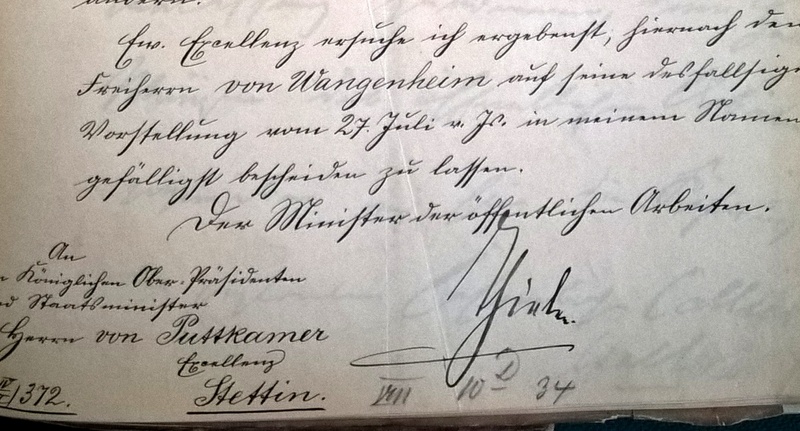 ändern.
Ew. Excellenz ersuche ich ergebenst, hiernach den
Freiherrn von Wangenheim auf seine desfallsige
Vorstellung vom 27. Juli v. Js. in meinem Namen
gefälligst bescheiden zu lassen.
Der Minister der öffentlichen Arbeiten.
Thielen.
An
Königlichen Ober-Präsidenten
Staatsminister
Herrn von Puttkamer
Excellenz
Stettin.
372.
VIII 10 34